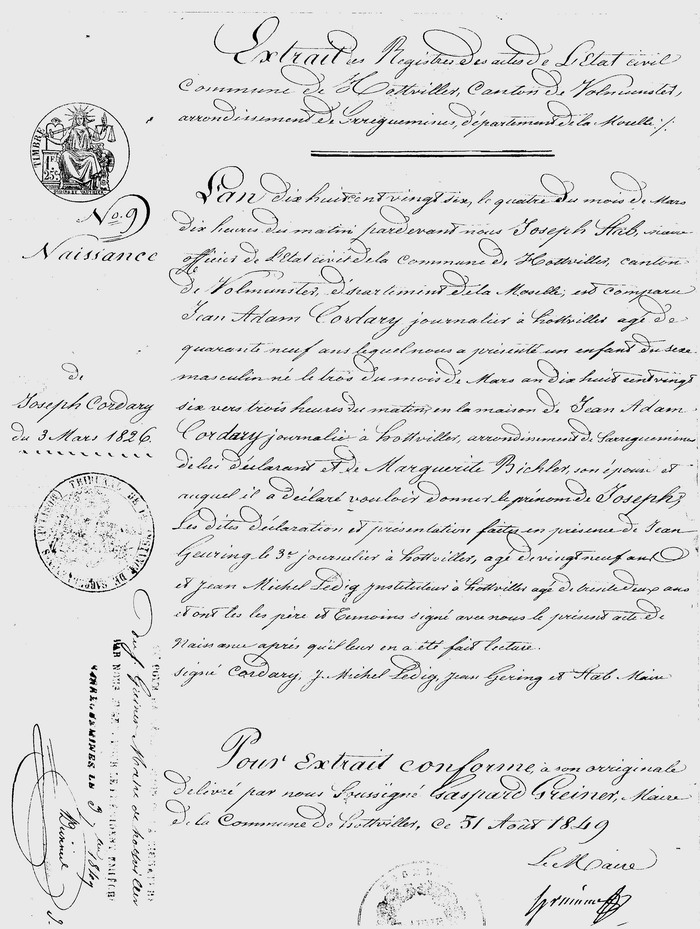 Extrait des Registres des actes de L'Etat civil
Commune de Hottviller, Canton de Volmunster,
arrondissement de Sarreguemines, département de la Moselle :/.
TIMBRE
1.F.
25c.
No. 9
Naissance
de
Joseph Cordary
du 3 Mars 1826.
L'an dix huit cent vingt six, le quatre du mois de Mars
dix heures du matin pardevant nous Joseph Stab, maire
officier de L'Etat civil de la Commune de Hottviller, canton
de Volmunster, département de la Moselle, est comparu
Jean Adam Cordary journalier à hottviller agé de
quarante neuf ans lequel nous a présenté un enfant du sexe
masculin né le trois du mois de Mars an dix huit cent vingt
six vers trois heures du matin, en la maison de Jean Adam
Cordary journalié à hottviller, arrondissement de Sarreguemine
de lui déclarant et de Marguerite Bichler, son épouse et
auquel il a déclaré vouloir donner le prénom de Joseph,
Les dites déclaration et présentation faites en présence de Jean
Geuring le 3e journalier à hottviller, agé de vingt neuf ans
et Jean Michel Ledig Instituteur à hottviller agé de trente deux ans
et ont les les père et témoins signé avec nous le présent acte de
Naissance après qu'il leur en a été fait lecture.
signé Cordary, J. Michel Ledig, Jean Gering et Stab Maire
Pour Extrait conforme à son originale
délivré par nous soussigné Gaspard Greiner, Maire
de la Commune de hottviller, ce 31 Août 1849
Le Maire
TRIBUNAL DE
SARREGUEMINES LE 3 1849
Greiner Maire de hottviller